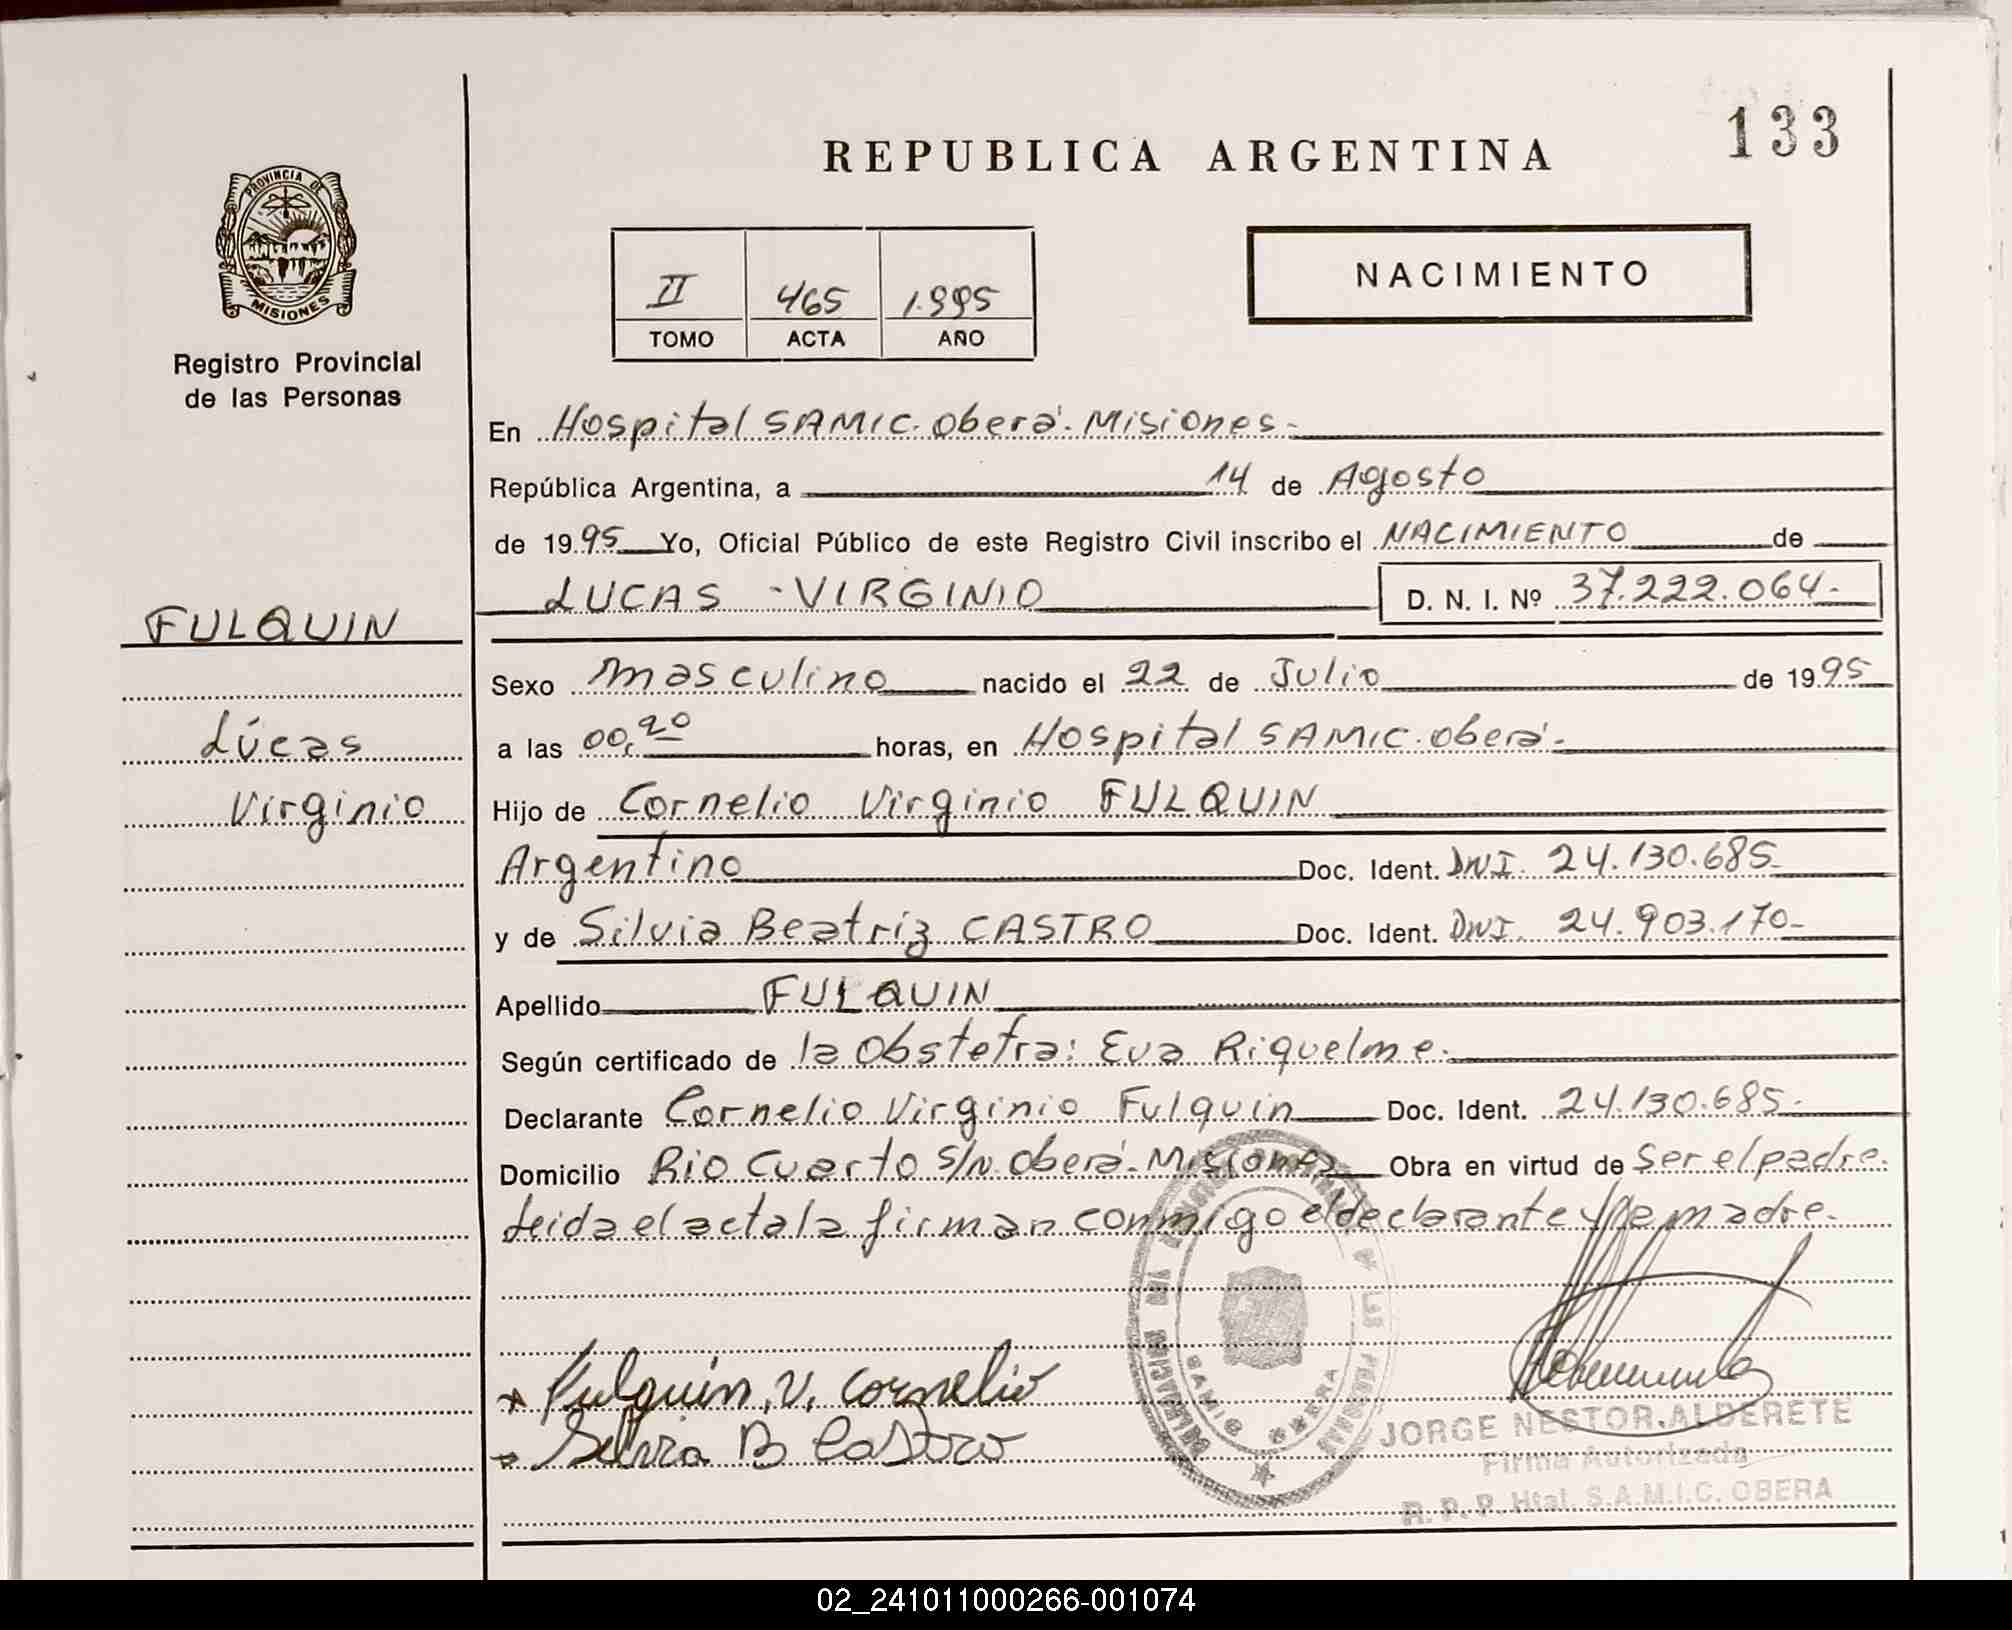 133
REPUBLICA ARGENTINA
PROVINCIA DE
MISIONES
NACIMIENTO
II 465 1.995
TOMO ACTA AÑO
Registro Provincial
de las Personas
En Hospital SAMIC. Oberá. Misiones.
República Argentina, a 14 de Agosto
de 1995 Yo, Oficial Público de este Registro Civil inscribo el NACIMIENTO de
LUCAS - VIRGINIO D. N. I. Nº 37.222.064.-
FULQUIN
Lúcas
Virginio
Sexo masculino nacido el 22 de Julio de 1995
a las 00,20 horas, en Hospital SAMIC. Oberá.-
Hijo de Cornelio Virginio FULQUIN
Argentino Doc. Ident. DNI. 24.130.685
y de Silvia Beatriz CASTRO Doc. Ident. DNI. 24.903.170-
Apellido FULQUIN
Según certificado de la Obstetra: Eva Riquelme.
Declarante Cornelio Virginio Fulquin Doc. Ident. 24.130.685.-
Domicilio Rio Cuarto s/n. Oberá. Misiones Obra en virtud de Ser el padre.
Leida el acta la firman conmigo el declarante y la madre.
Fulquin, V. Cornelio
Silvia B Castro
SAMIC OBERA
JORGE NESTOR ALDERETE
Firma Autorizada
R. P. P. Htal. S.A.M.I.C. OBERA
02_241011000266-001074